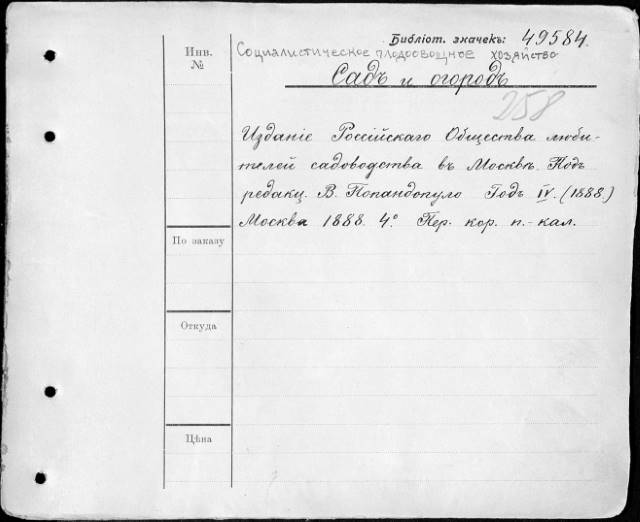 Библіот. значекъ: 49584.
Инв.
№
Социалистическое плодоовощное хозяйство
Садъ и огородъ
258
Изданіе Россійскаго Общества люби-
телей садоводства въ Москвѣ. Подъ
редакц. В. Попандопуло Годъ IV. (1888.)
Москва 1888. 4° Пер. кор. п.-кал.
По заказу
Откуда
Цѣна